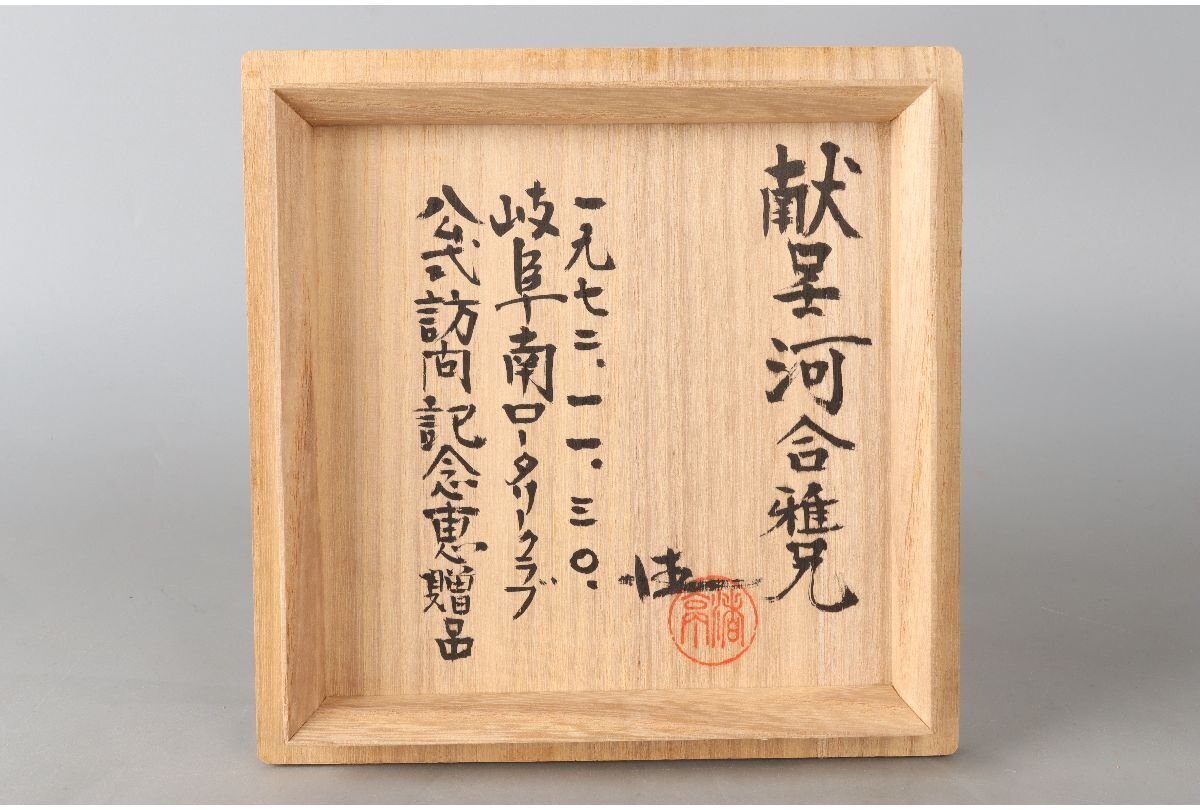 献呈 河合雅兄
一九七二、一一、三〇、
岐阜南ロータリークラブ
公式訪問記念恵贈品